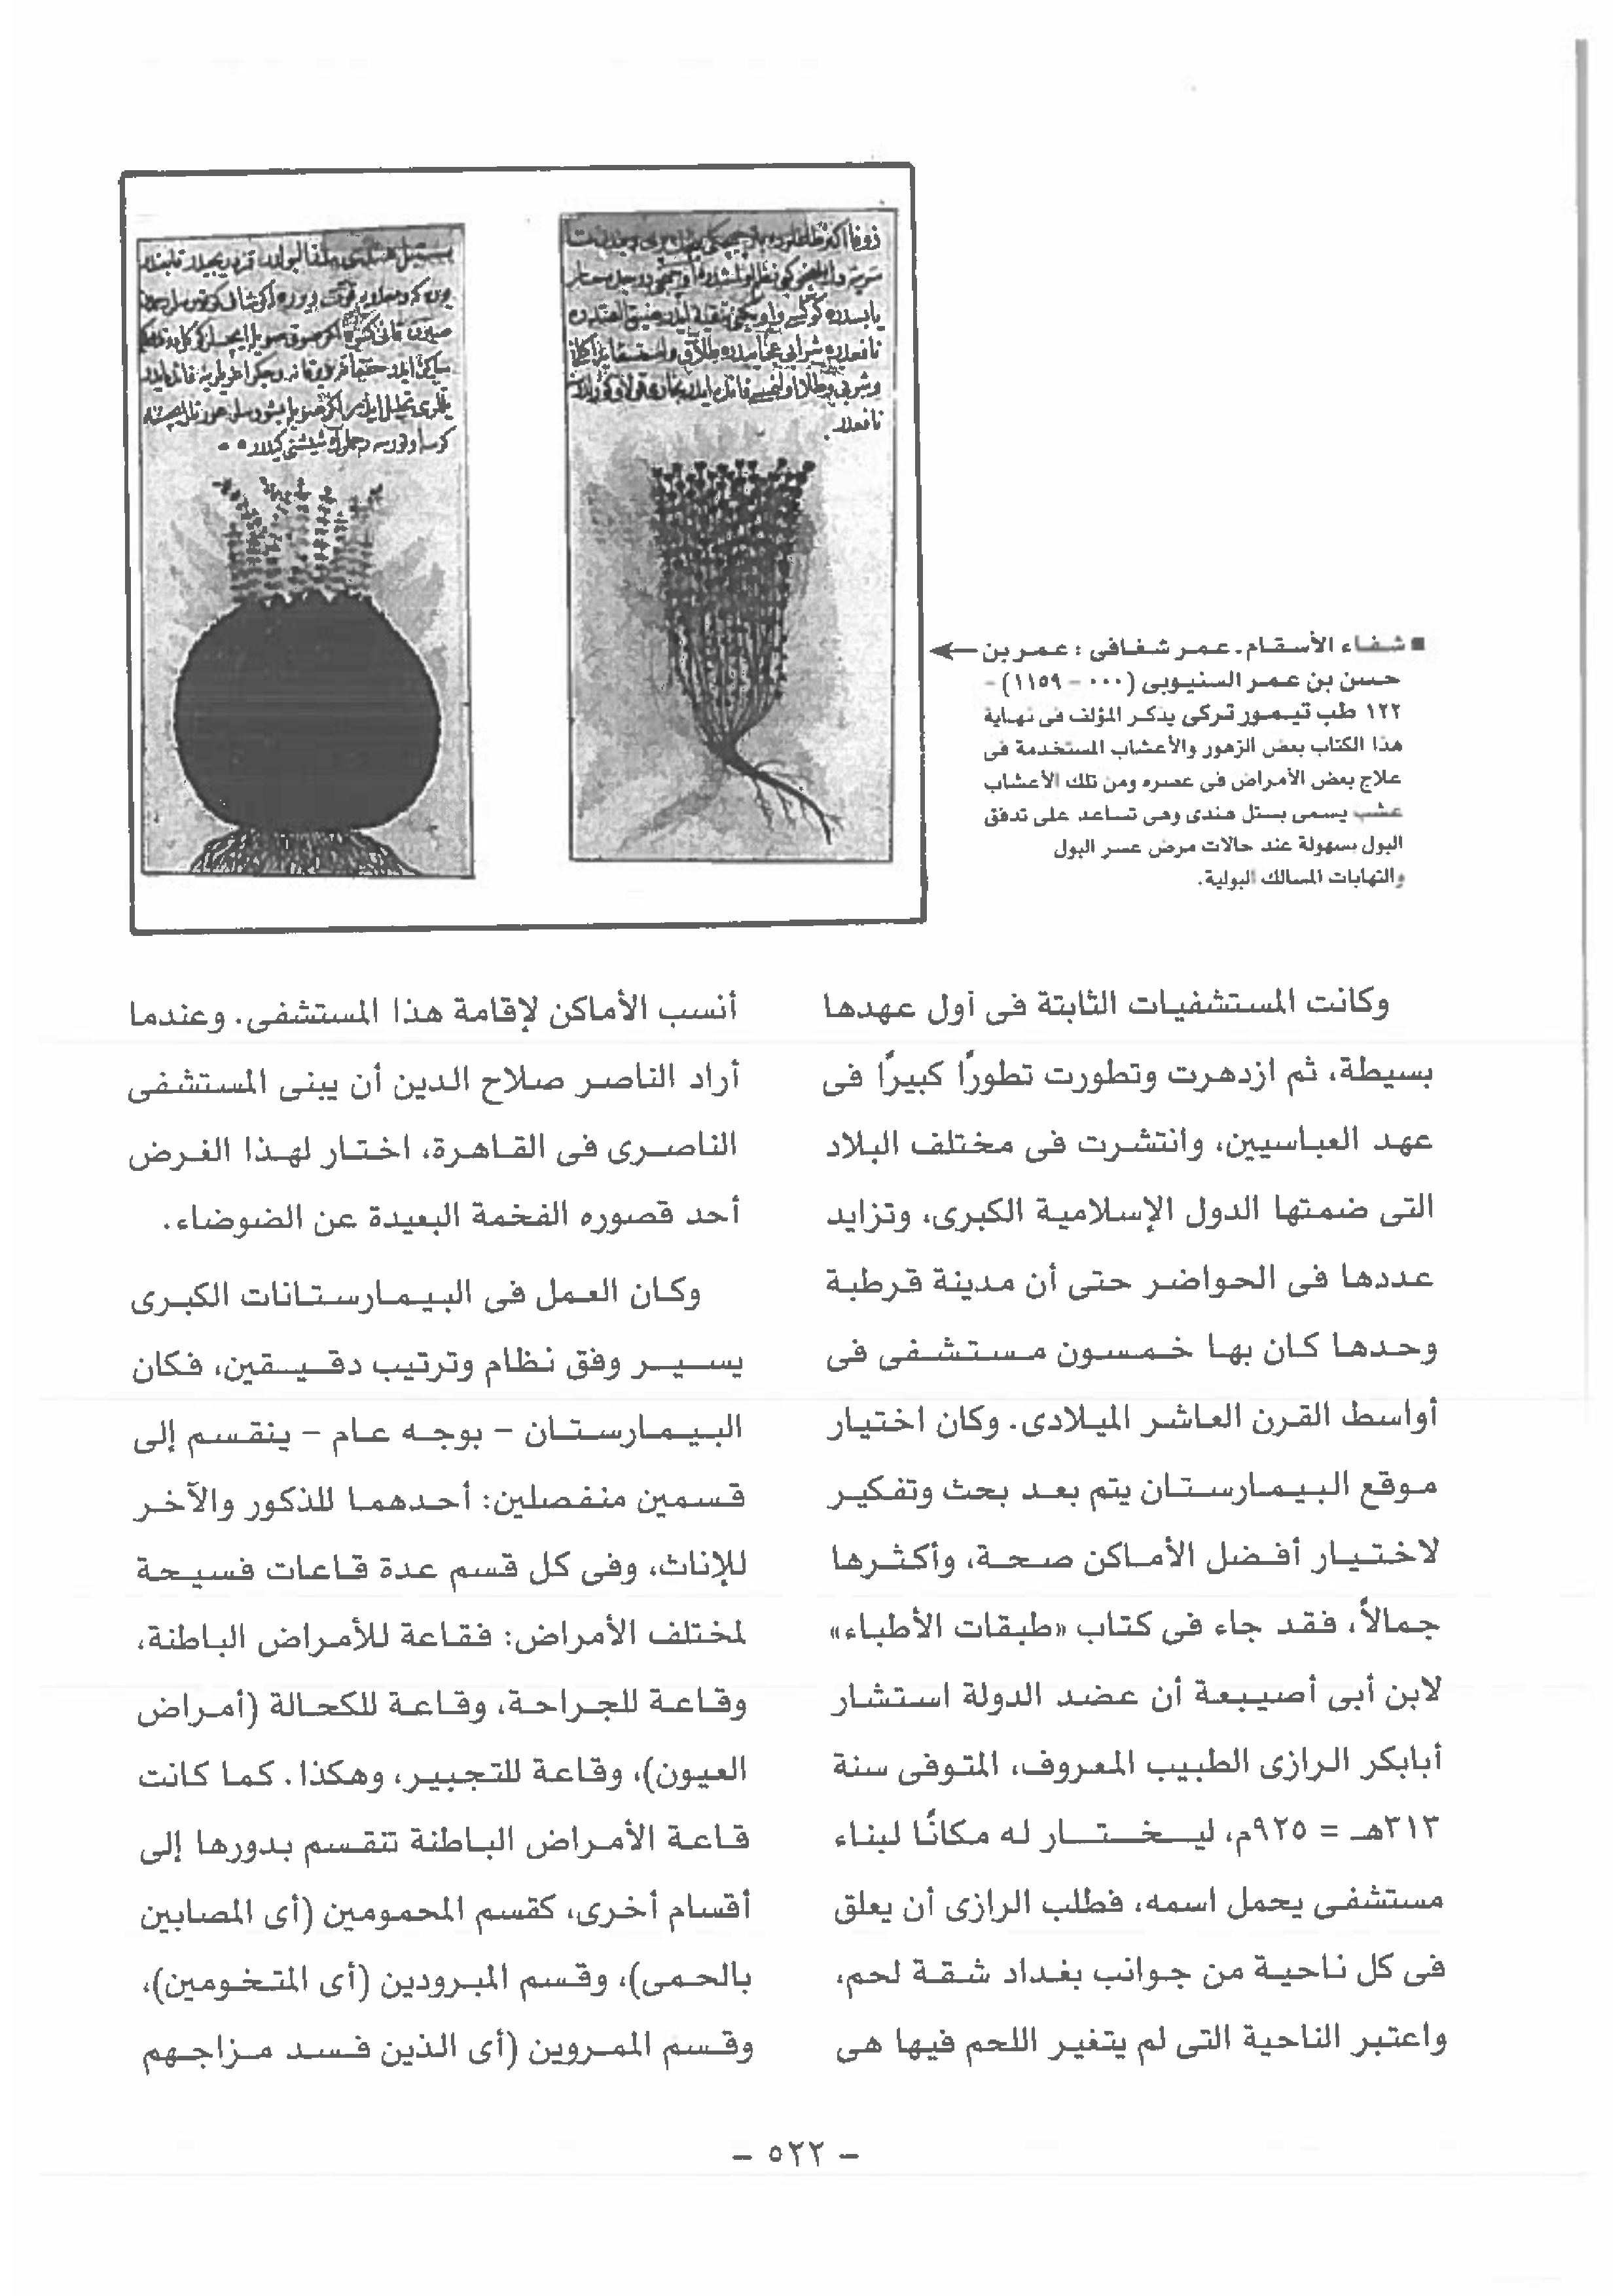 ■ شفاء الأسقام. عمر شفافى : عمر بن
حسن بن عمر السنيوبى (٠٠٠ - ١١٥٩) -
١٢٢ طب تيمور تركى يذكر المؤلف فى نهاية
هذا الكتاب بعض الزهور والأعشاب المستخدمة فى
علاج بعض الأمراض فى عصره ومن تلك الأعشاب
عشب يسمى بستل هندى وهى تساعد على تدفق
البول بسهولة عند حالات مرض عسر البول
والتهابات المسالك البولية.
وكانت المستشفيات الثابتة فى أول عهدها
بسيطة، ثم ازدهرت وتطورت تطورًا كبيرًا فى
عهد العباسيين، وانتشرت فى مختلف البلاد
التى ضمتها الدول الإسلامية الكبرى، وتزايد
عددها فى الحواضر حتى أن مدينة قرطبة
وحدها كان بها خمسون مستشفى فى
أواسط القرن العاشر الميلادى. وكان اختيار
موقع البيمارستان يتم بعد بحث وتفكير
لاختيار أفضل الأماكن صحة، وأكثرها
جمالاً، فقد جاء فى كتاب «طبقات الأطباء»
لابن أبى أصيبعة أن عضد الدولة استشار
أبابكر الرازى الطبيب المعروف، المتوفى سنة
٣١٣هـ = ٩٢٥م، ليختار له مكانًا لبناء
مستشفى يحمل اسمه، فطلب الرازى أن يعلق
فى كل ناحية من جوانب بغداد شقة لحم،
واعتبر الناحية التى لم يتغير اللحم فيها هى
أنسب الأماكن لإقامة هذا المستشفى. وعندما
أراد الناصر صلاح الدين أن يبنى المستشفى
الناصرى فى القاهرة، اختار لهذا الغرض
أحد قصوره الفخمة البعيدة عن الضوضاء.
وكان العمل فى البيمارستانات الكبرى
يسير وفق نظام وترتيب دقيقين، فكان
البيمارستان - بوجه عام - ينقسم إلى
قسمين منفصلين: أحدهما للذكور والآخر
للإناث، وفى كل قسم عدة قاعات فسيحة
لمختلف الأمراض: فقاعة للأمراض الباطنة،
وقاعة للجراحة، وقاعة للكحالة (أمراض
العيون)، وقاعة للتجبير، وهكذا. كما كانت
قاعة الأمراض الباطنة تنقسم بدورها إلى
أقسام أخرى، كقسم المحمومين (أى المصابين
بالحمى)، وقسم المبرودين (أى المتخومين)،
وقسم الممروين (أى الذين فسد مزاجهم
- ٥٢٢ -